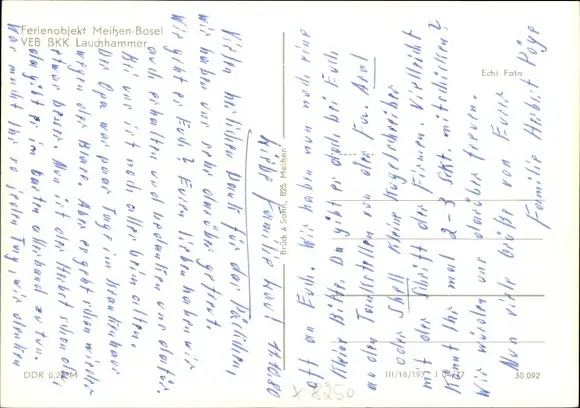 Ferienobjekt Meißen-Bosel
VEB BKK Lauchhammer
17.10.80
Liebe Familie
Vielen herzlichen Dank für das Päckchen,
wir haben uns sehr darüber gefreut.
Wie geht es Euch? Euren lieben haben wir
auch erhalten und bedanken uns dafür.
Bei uns ist noch alles beim alten.
Der Opa war paar Tage im Krankenhaus
wegen der Blase. Aber es geht schon wieder
etwas besser. Nun ist der Herbst schon da,
da gibt es im Garten allerhand zu tun.
Was macht Ihr so jeden Tag, wir denken
oft an Euch. Wir haben nun noch eine
kleine Bitte. Da gibt es doch bei Euch
an den Tankstellen von der Fa. Aral
oder Shell kleine Kugelschreiber
mit der Schrift der Firmen. Vielleicht
könnt Ihr mal 2-3 Stk. mitschicken?
Wir würden uns darüber freuen.
Nun viele Grüße von Eurer
Familie Herbert
Echt Foto
Brück & Sohn, 825 Meißen
DDR 0,20 M
III/18/197
30 092
x 8250